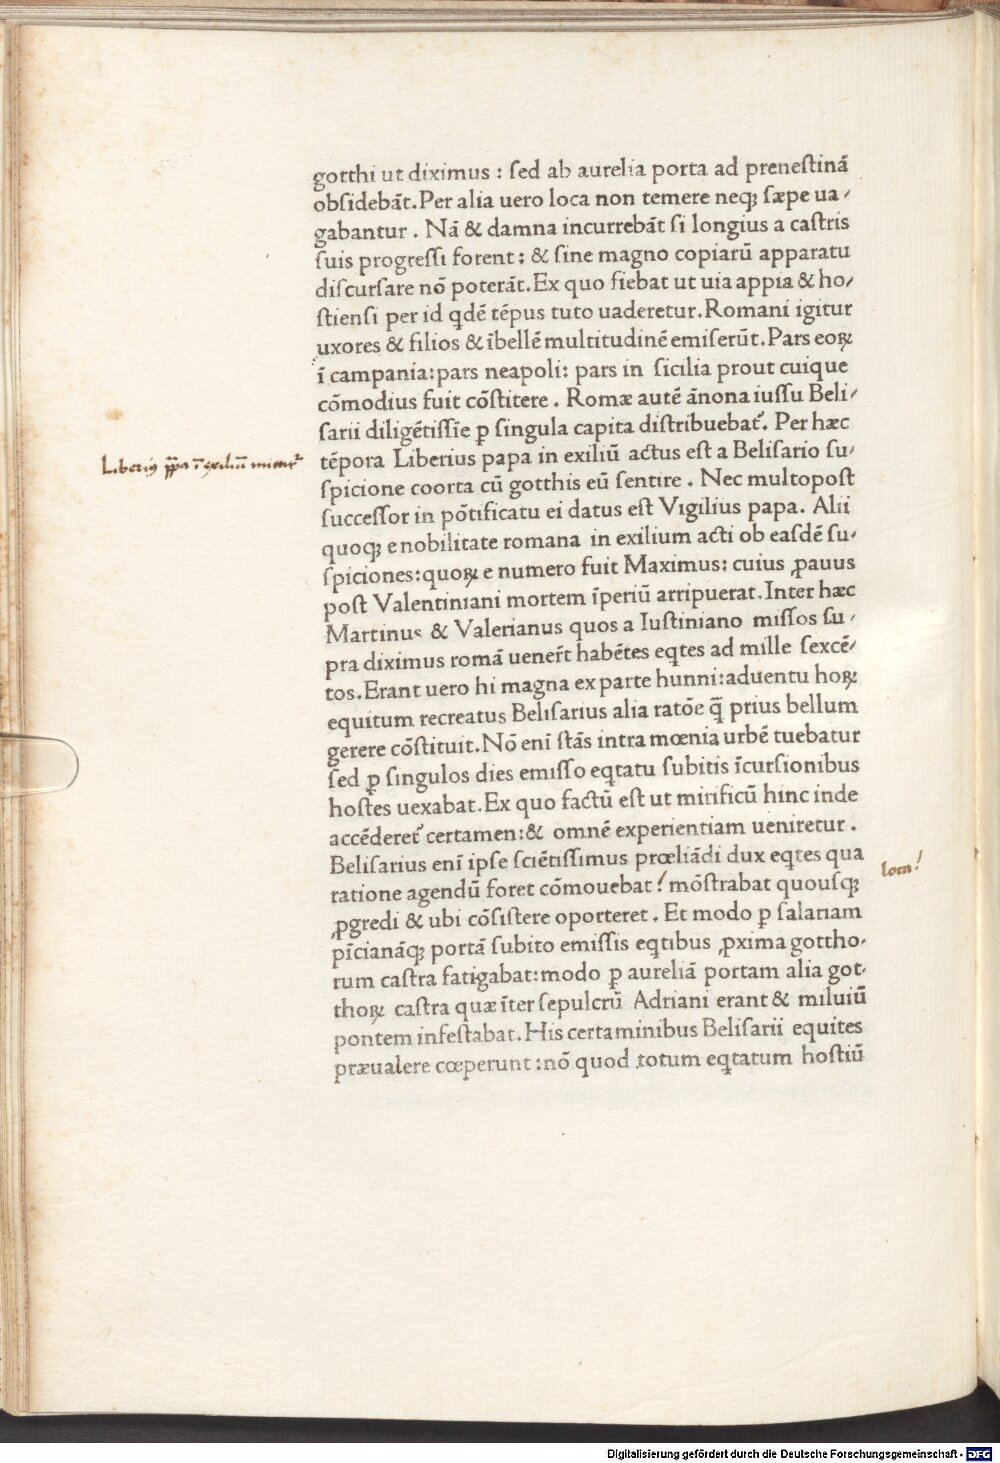 gotthi ut diximus : sed ab aurelia porta ad prenestinā
obsidebāt.Per alia uero loca non temere neqꝫ sæpe ua⸗
gabantur . Nā & damna incurrebāt si longius a castris
suis progressi forent: & sine magno copiarū apparatu
discursare nō poterāt.Ex quo fiebat ut uia appia & ho⸗
stiensi per id qdē tēpus tuto uaderetur.Romani igitur
uxores & filios & ībellē multitudinē emiserūt.Pars eoꝝ
ī campania:pars neapoli: pars in sicilia prout cuique
cōmodius fuit cōstitere . Romæ autē ānona iussu Beli⸗
sarii diligētissīe ꝑ singula capita distribuebat᷑. Per hæc
Liberius ppa ī exiliū mittit᷑
tēpora Liberius papa in exiliū actus est a Belisario su⸗
spicione coorta cū gotthis eū sentire . Nec multopost
successor in pōtificatu ei datus est Vigilius papa. Alii
quoqꝫ e nobilitate romana in exilium acti ob easdē su⸗
spiciones:quoꝝ e numero fuit Maximus: cuius ꝓauus
post Valentiniani mortem īperiū arripuerat.Inter hæc
Martinus & Valerianus quos a Iustiniano missos su⸗
pra diximus romā uener̄t habētes eqtes ad mille sexcē⸗
tos.Erant uero hi magna ex parte hunni:aduentu hoꝝ
equitum recreatus Belisarius alia ratōe q̄ prius bellum
gerere cōstituit.Nō enī stās intra mœnia urbē tuebatur
sed ꝑ singulos dies emisso eqtatu subitis īcursionibus
hostes uexabat.Ex quo factū est ut mirificū hinc inde
accēderet᷑ certamen:& omnē experientiam ueniretur .
Belisarius enī ipse sciētissimus prœliādi dux eqtes qua
ratione agendū foret cōmouebat! mōstrabat quousqꝫ
loca!
ꝓgredi & ubi cōsistere oporteret . Et modo ꝑ salariam
pīcianāqꝫ portā subito emissis eqtibus ꝓxima gottho⸗
rum castra fatigabat:modo ꝑ aureliā portam alia got⸗
thoꝝ castra quæ īter sepulcrū Adriani erant & miluiū
pontem infestabat.His certaminibus Belisarii equites
præualere cœperunt:nō quod totum eqtatum hostiū
Digitalisierung gefördert durch die Deutsche Forschungsgemeinschaft - DFG